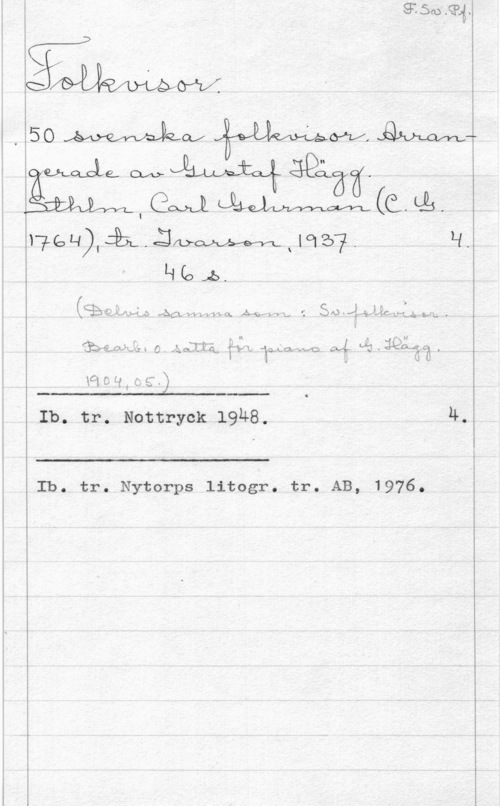 F.Sv.Pf.
Folkvisor.
50 svenska folkvisor. Arran-
gerade av Gustaf Hägg.
Sthlm, Carl Gehrman (C. G.
1764), tr. Ivarsson, 1937. 4.
46 s.
(Delvis samma som : Sv. folkvisor.
Bearb. o. satta för piano af G. Hägg.
1904, 05.)
Ib. tr. Nottryck 1948. 4.
Ib. tr. Nytorps litogr. tr. AB, 1976.